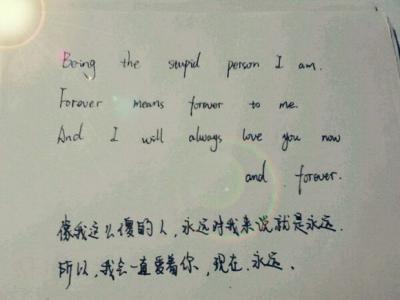 Being the stupid person I am.
Forever means forever to me.
And I will always love you now
and forever.
像我这么傻的人,永远对我来说就是永远.
所以,我会一直爱着你,现在.永远.